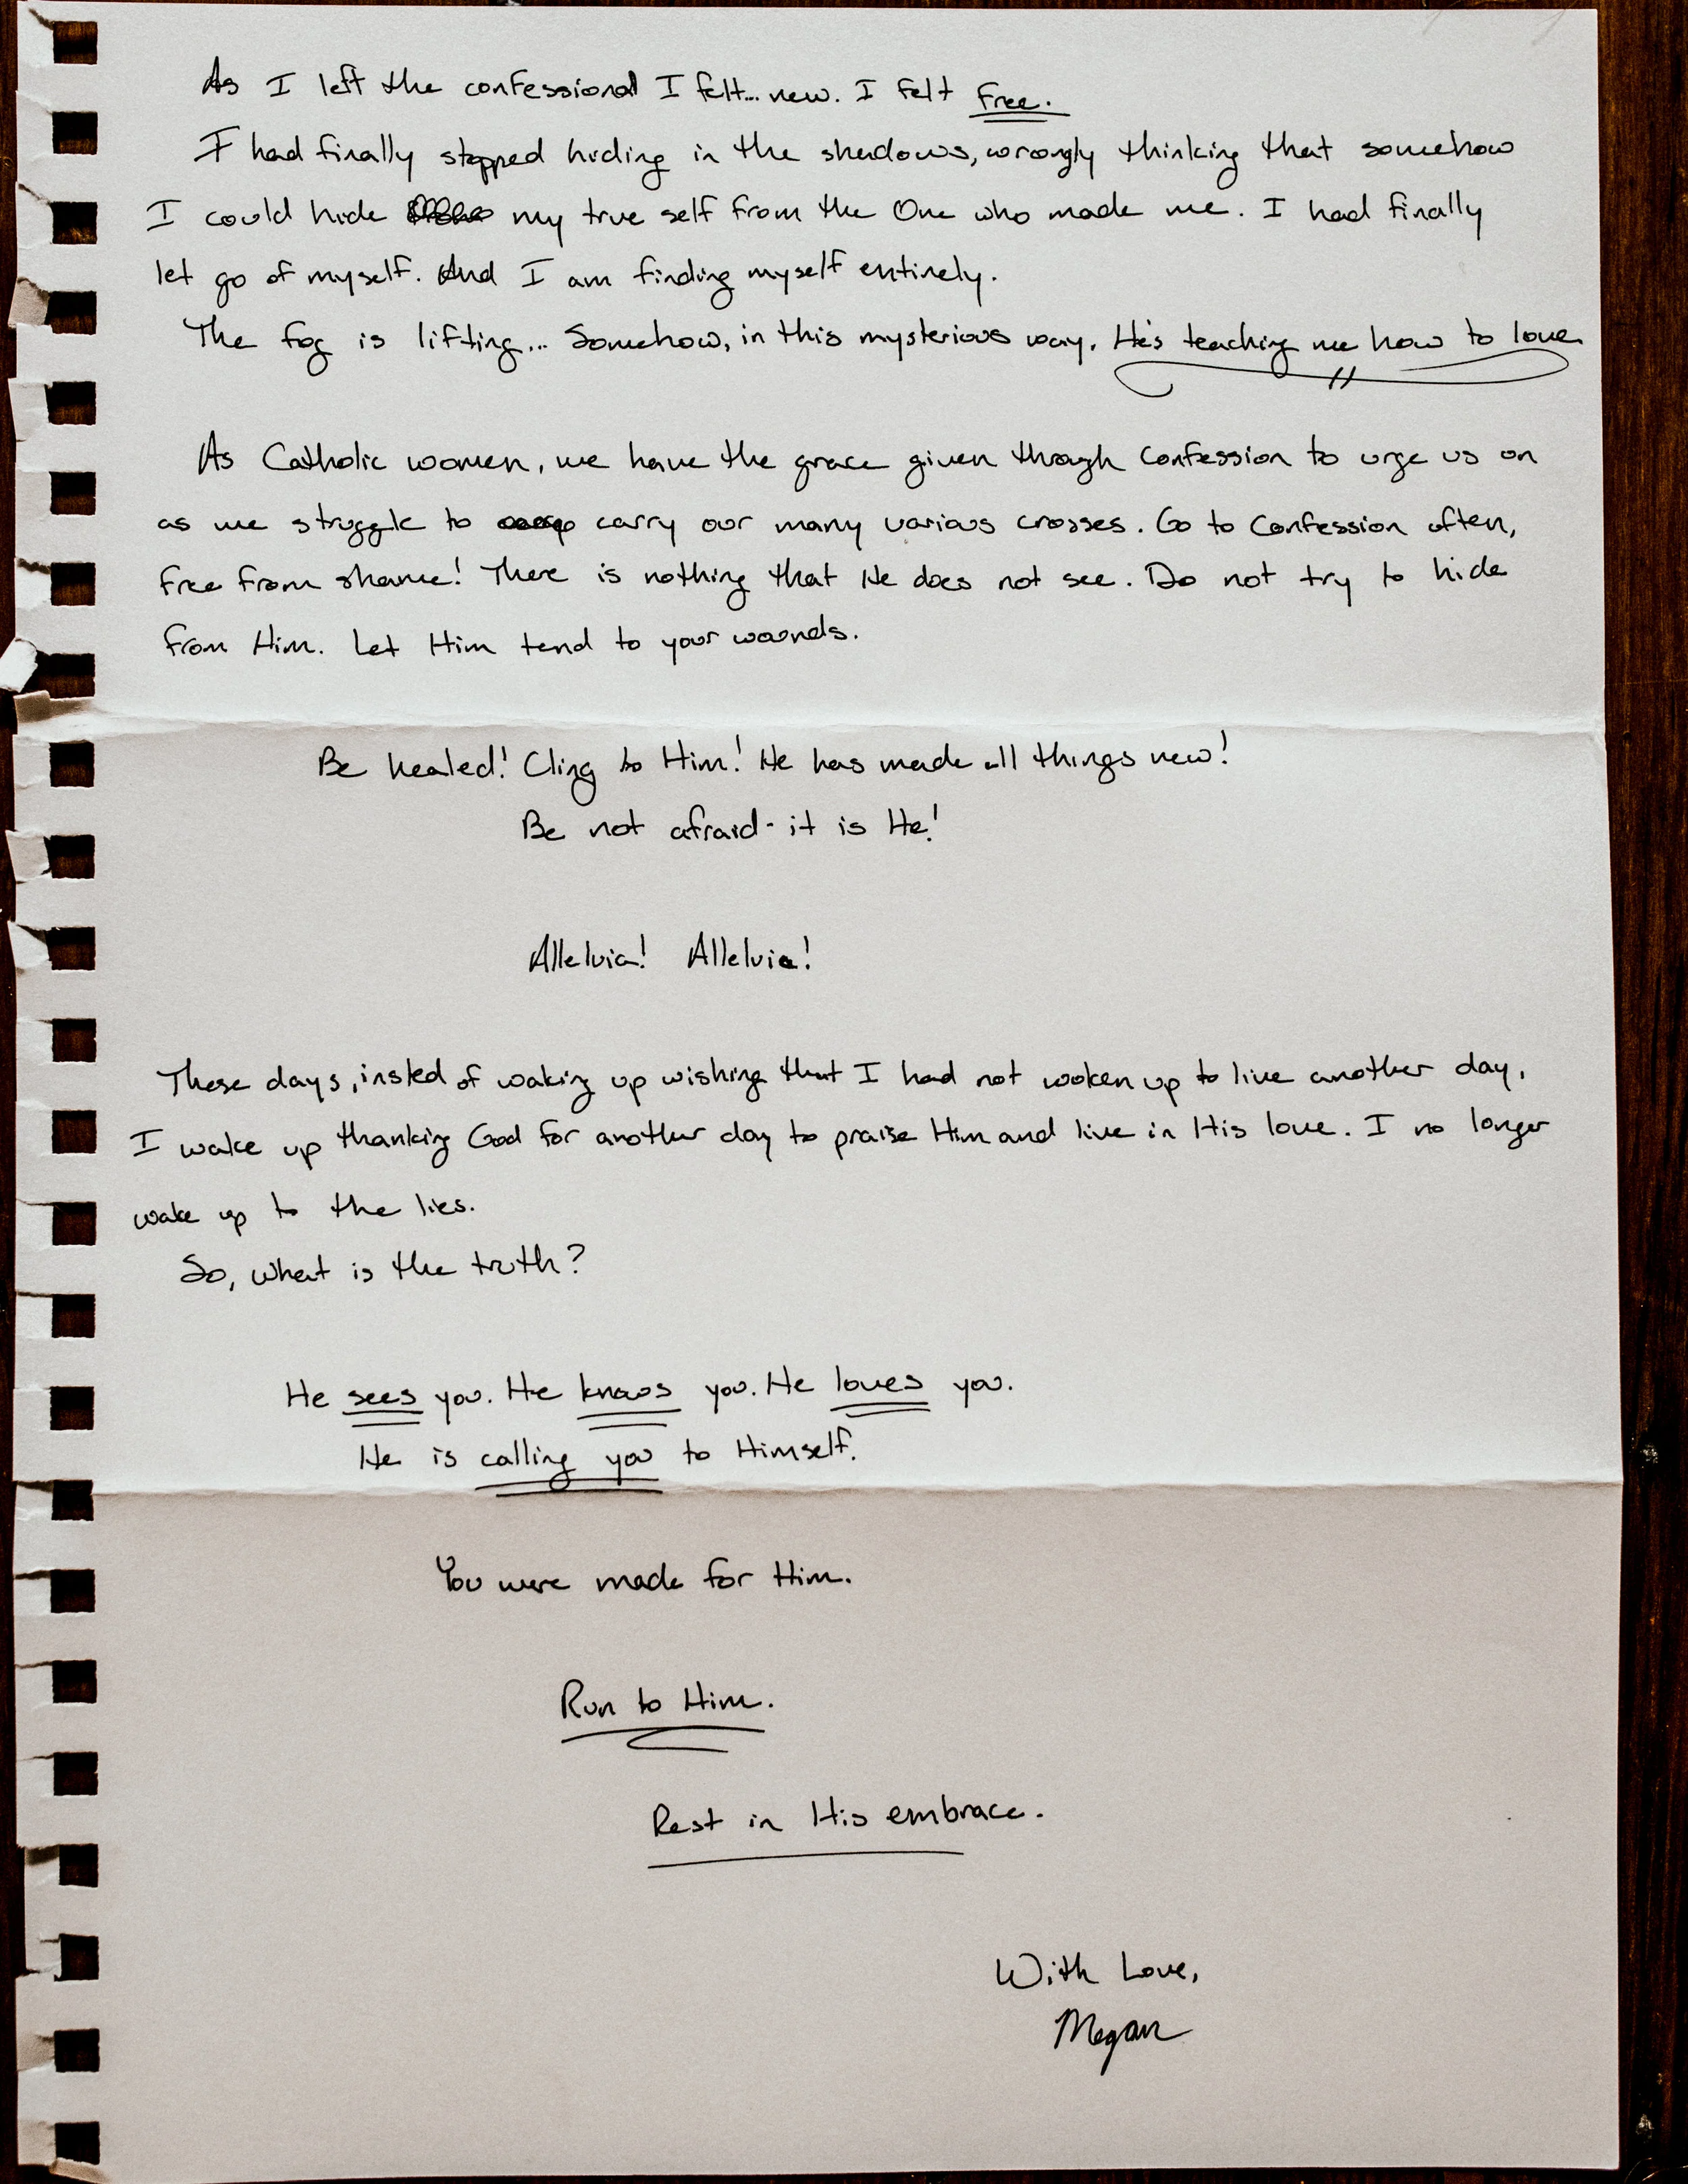 As I left the confessional I felt... new. I felt free.
I had finally stopped hiding in the shadows, wrongly thinking that somehow
I could hide my true self from the One who made me. I had finally
let go of myself. And I am finding myself entirely.
The fog is lifting... Somehow, in this mysterious way, He's teaching me how to love.
As Catholic women, we have the grace given through Confession to urge us on
as we struggle to carry our many various crosses. Go to Confession often,
free from shame! There is nothing that He does not see. Do not try to hide
from Him. Let Him tend to your wounds.
Be healed! Cling to Him! He has made all things new!
Be not afraid - it is He!
Alleluia! Alleluia!
These days, insted of waking up wishing that I had not woken up to live another day,
I wake up thanking God for another day to praise Him and live in His love. I no longer
wake up to the lies.
So, what is the truth?
He sees you. He knows you. He loves you.
He is calling you to Himself.
You were made for Him.
Run to Him.
Rest in His embrace.
With Love,
Megan